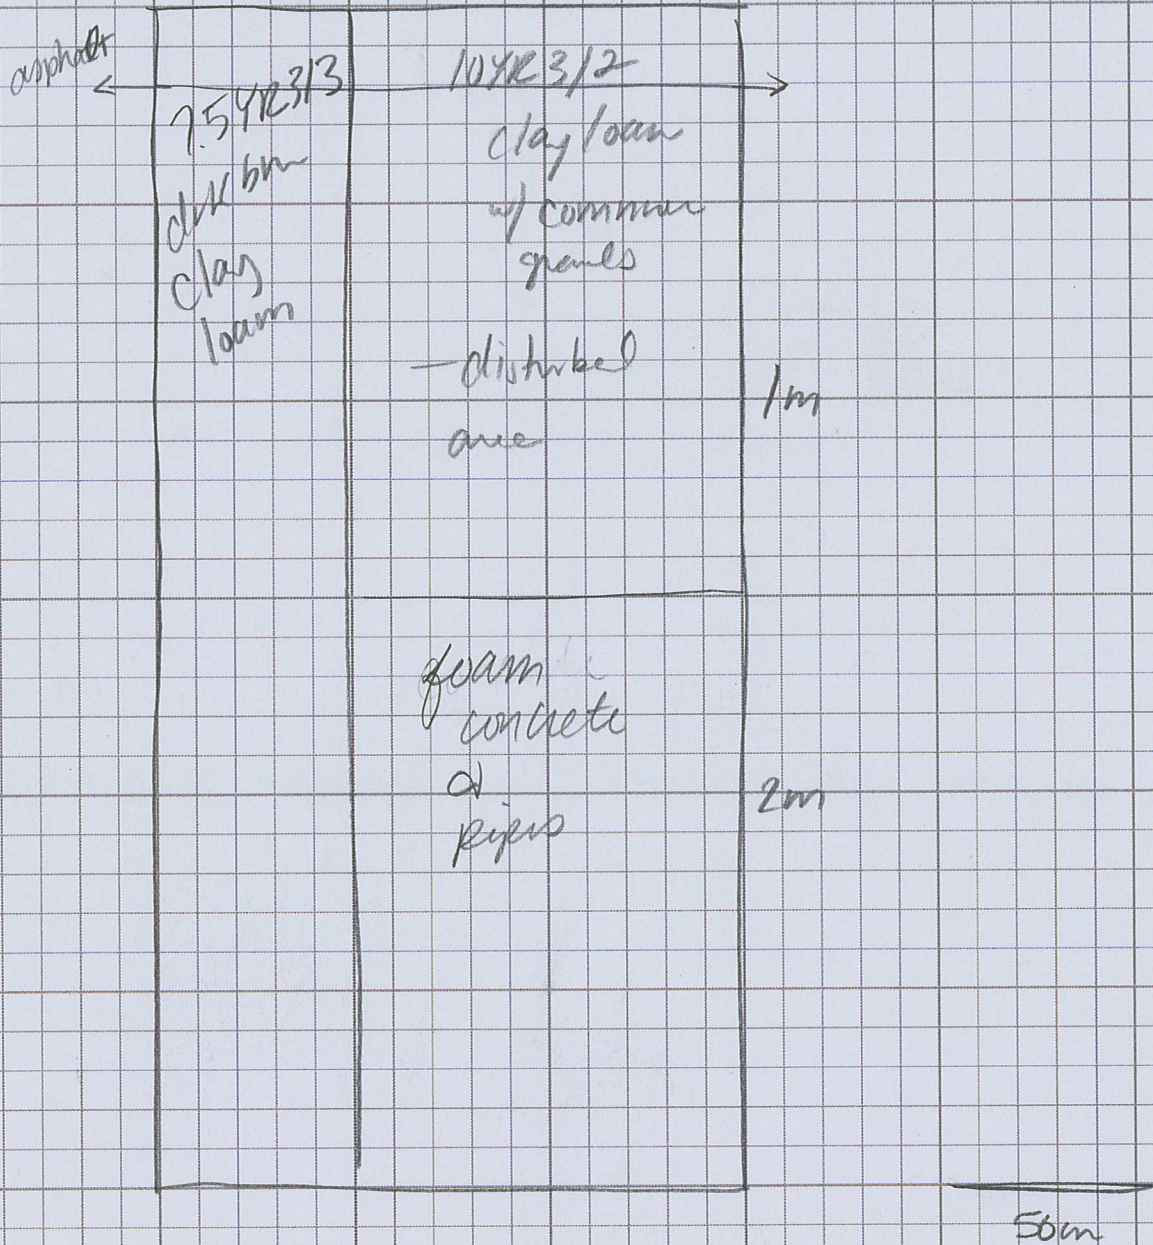 asphalt
7.5YR3/3
drk brn
clay
loam
10YR 3/2
clay loam
w/ common
gravels
- disturbed
area
1m
foam
concrete
&
pipes
2m
50cm